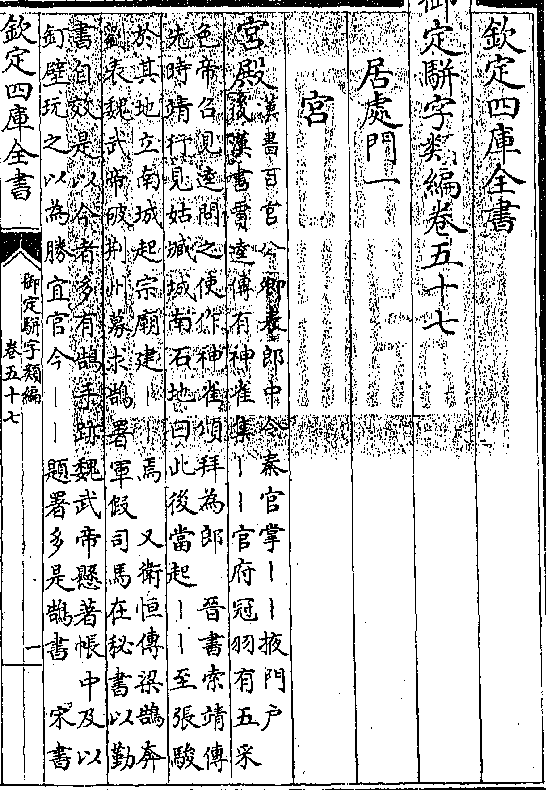 欽定四庫全書
御定駢字類編卷五十七
居處門一
宮
宮殿漢書百官公卿表郎中令秦官掌丨丨掖門戸
後漢書賈逵傳有神雀集丨丨官府冠羽有五采
色帝召見逵問之使作神雀頌拜為郎 晉書索靖傳
先時靖行見姑臧城南石地曰此後當起丨丨至張駿
於其地立南城起宗廟建丨丨焉 又衛恒傳梁鵠奔
劉表魏武帝破荆州募求鵠署軍假司馬在秘書以勤
書自效是以今者多有鵠手跡魏武帝懸著帳中及以
釘壁玩之以為勝宜官今丨丨題署多是鵠書 宋書
欽定四庫全書
御定駢字類編
卷五十七
一